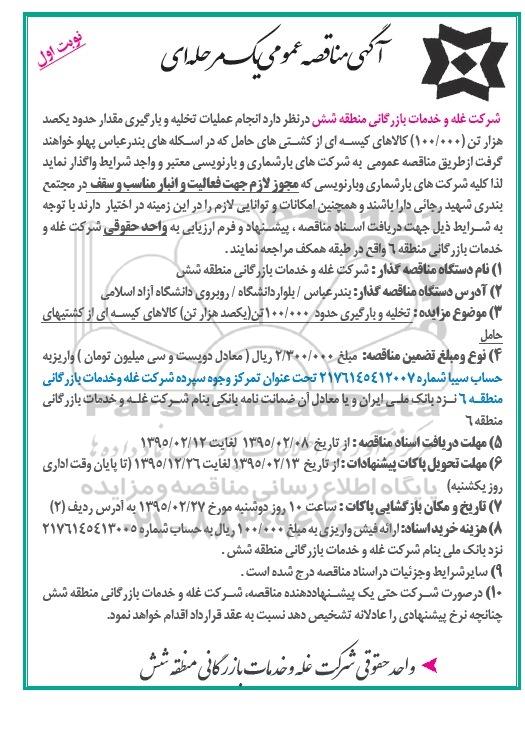 آگهی مناقصه عمومی یک مرحله‌ای
نوبت اول
شرکت غله و خدمات بازرگانی منطقه شش درنظر دارد انجام عملیات تخلیه و بارگیری مقدار حدود یکصد
هزار تن (۱۰۰/۰۰۰) کالاهای کیسه ای از کشتی های حامل که در اسکله های بندرعباس پهلو خواهند
گرفت ازطریق مناقصه عمومی به شرکت های بارشماری و بارنویسی معتبر و واجد شرایط واگذار نماید
لذا کلیه شرکت های بارشماری وبارنویسی که مجوز لازم جهت فعالیت و انبار مناسب و سقف در مجتمع
بندری شهید رجائی دارا باشند و همچنین امکانات و توانایی لازم را در این زمینه در اختیار دارند با توجه
به شرایط ذیل جهت دریافت اسناد مناقصه ، پیشنهاد و فرم ارزیابی به واحد حقوقی شرکت غله و
خدمات بازرگانی منطقه ۶ واقع در طبقه همکف مراجعه نمایند .
۱) نام دستگاه مناقصه گذار : شرکت غله و خدمات بازرگانی منطقه شش
۲) آدرس دستگاه مناقصه گذار: بندرعباس / بلواردانشگاه / روبروی دانشگاه آزاد اسلامی
۳) موضوع مزایده : تخلیه و بارگیری حدود ۱۰۰/۰۰۰تن(یکصد هزار تن) کالاهای کیسه ای از کشتیهای
حامل
۴) نوع ومبلغ تضمین مناقصه: مبلغ ۲/۳۰۰/۰۰۰ ریال ( معادل دویست و سی میلیون تومان ) واریزبه
حساب سیبا شماره ۲۱۷۶۱۴۵۴۱۲۰۰۷ تحت عنوان تمرکز وجوه سپرده شرکت غله وخدمات بازرگانی
منطقه ۶ نزد بانک ملی ایران و یا معادل آن ضمانت نامه بانکی بنام شرکت غله و خدمات بازرگانی
منطقه ۶
۵) مهلت دریافت اسناد مناقصه : از تاریخ ۱۳۹۵/۰۲/۰۸ لغایت ۱۳۹۵/۰۲/۱۲
۶) مهلت تحویل پاکات پیشنهادات : از تاریخ ۱۳۹۵/۰۲/۱۳ لغایت ۱۳۹۵/۱۲/۲۶ (تا پایان وقت اداری
روز یکشنبه)
۷) تاریخ و مکان بازگشایی پاکات : ساعت ۱۰ روز دوشنبه مورخ ۱۳۹۵/۰۲/۲۷ به آدرس ردیف (۲)
۸) هزینه خرید اسناد: ارائه فیش واریزی به مبلغ ۱۰۰/۰۰۰ ریال به حساب شماره ۲۱۷۶۱۴۵۴۱۳۰۰۵
نزد بانک ملی بنام شرکت غله و خدمات بازرگانی منطقه شش .
۹) سایرشرایط وجزئیات دراسناد مناقصه درج شده است .
۱۰) درصورت شرکت حتی یک پیشنهاددهنده مناقصه، شرکت غله و خدمات بازرگانی منطقه شش
چنانچه نرخ پیشنهادی را عادلانه تشخیص دهد نسبت به عقد قرارداد اقدام خواهد نمود.
واحد حقوقی شرکت غله و خدمات بازرگانی منطقه شش